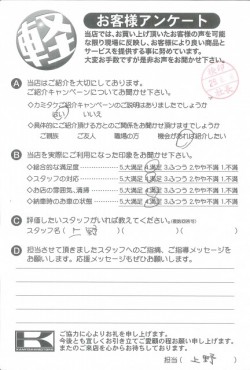 軽
お客様アンケート
当店では、お買い上げ頂いたお客様の声を可能な限り現場に反映し、お客様により良い商品とサービスを提供する事に努めています。
大変お手数ですが是非お声をお聞かせ下さい。
A 当店はご紹介を大切にしております。
ご紹介キャンペーンについてお聞かせ下さい。
◇カミタケご紹介キャンペーンのご説明はありましたでしょうか
はい いいえ
◇具体的にご紹介頂ける方とのご関係をお聞かせ頂けますでしょうか
ご親族 ご友人 職場の方 機会があれば紹介したい
B 当店を実際にご利用になった印象をお聞かせ下さい。
◇総合的な満足度 5.大満足 4.満足 3.ふつう 2.やや不満 1.不満
◇スタッフの対応 5.大満足 4.満足 3.ふつう 2.やや不満 1.不満
◇お店の雰囲気、清掃 5.大満足 4.満足 3.ふつう 2.やや不満 1.不満
◇納車時のお車の状態 5.大満足 4.満足 3.ふつう 2.やや不満 1.不満
C 評価したいスタッフがいれば教えてください。
スタッフ名( 上野 )
D 担当させて頂きましたスタッフへのご指摘、ご指導メッセージをお願いします。応援メッセージもぜひお願いします。
K
ご協力に心よりお礼を申し上げます。
今後とも宜しくお引き立てご愛顧の程お願い申し上げます。
またのご来店を心からお待ちしております。
担当( 上野 )